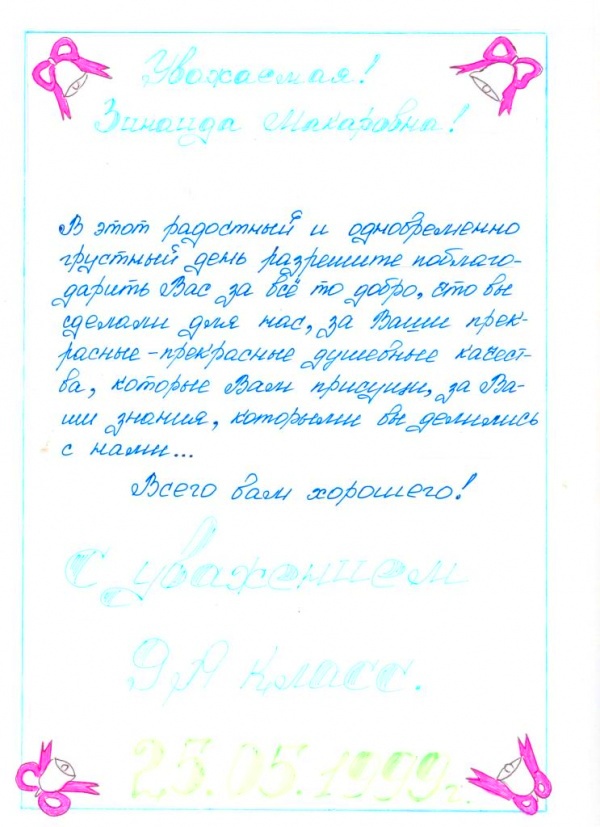 Уважаемая!
Зинаида Макаровна!
В этот радостный и одновременно
грустный день разрешите поблаго-
дарить Вас за всё то добро, что вы
сделали для нас, за Ваши прек-
расные-прекрасные душевные качест-
ва, которые Вам присущи, за Ва-
ши знания, которыми вы делились
с нами...
Всего вам хорошего!
С уважением
9А класс.
25.05.1999г.